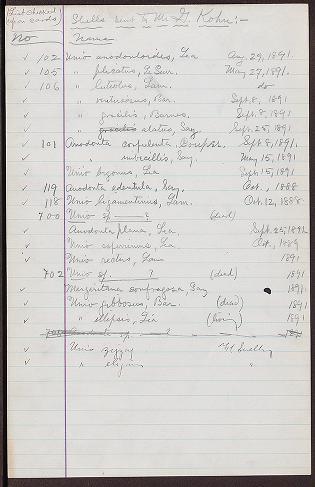 (List checked upon cards)
Shells sent to Mr. G. Kohn:-
No Name
✓ 102 Unio anodontoides, Lea Aug 29, 1891.
✓ 105 " plicatus, Le Suer. May 27, 1891.
✓ 106 " luteolus, Lam. do
✓ " Bar. Sept. 8, 1891
✓ " gracilis, Barnes. Sept. 8, 1891
✓ " elatus, Say Sept. 25, 1891
✓ 101 Anodonta corpulenta, Sept 8, 1891.
✓ " Say. May 15, 1891
✓ Unio Lea Sept 15, 1891
✓ 119 Anodonta edentula, Say. Oct., 1888
✓ 118 Unio ligamentinus, Lam. Oct. 12, 1888
700 Unio sp ——? (dead)
✓ Anodonta plana, Lea. Sept 25, 1891
✓ Unio Lea. Oct., 1889
✓ Unio rectus, Lam 1891
702 Unio sf. ? (dead) 1891
✓ Margaritana confragosa, Say 1891.
✓ Unio gibbosus, Bar. (dead) 1891
✓ " ellipsis, Lea (living) 1891
?
✓ Unio zigzag
✓ " elegans "